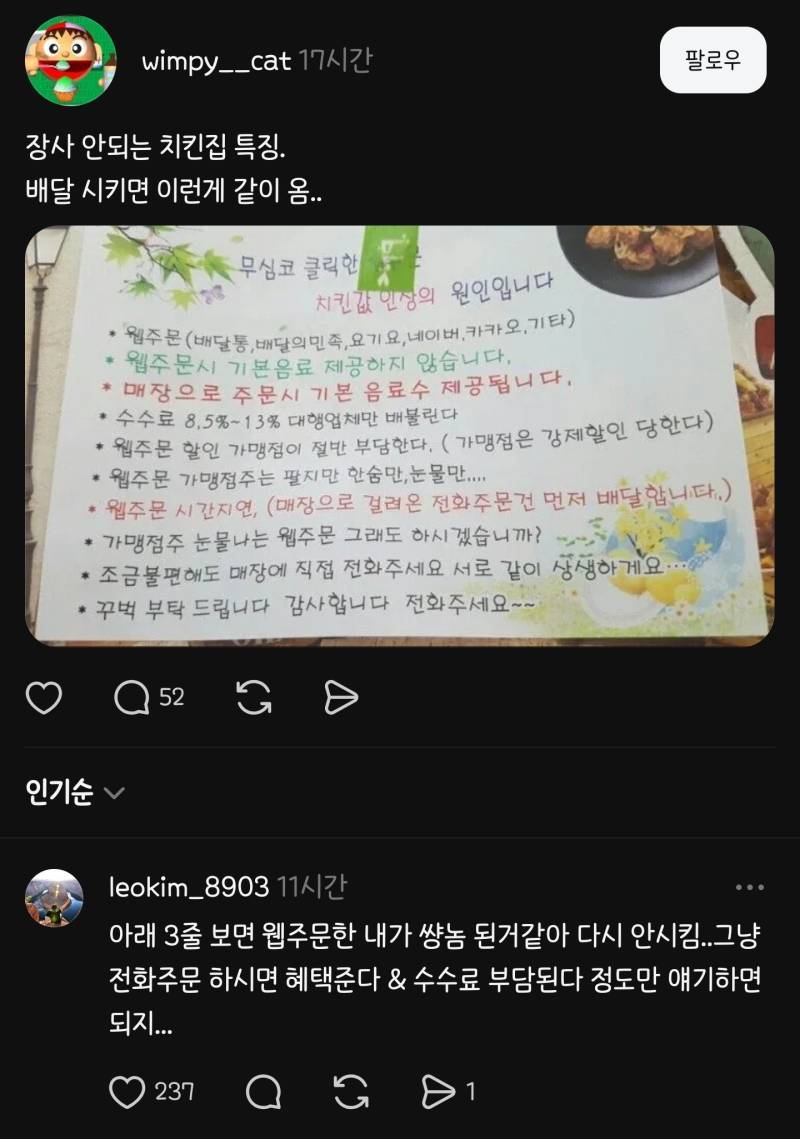 wimpy__cat 17시간
팔로우
장사 안되는 치킨집 특징.
배달 시키면 이런게 같이 옴..
무심코 클릭한
치킨값 인상의 원인입니다
* 웹주문(배달통,배달의민족,요기요,네이버,카카오,기타)
* 웹주문시 기본음료 제공하지 않습니다.
* 매장으로 주문시 기본 음료수 제공됩니다.
* 수수료 8,5%~13% 대행업체만 배불린다
* 웹주문 할인 가맹점이 절반 부담한다. (가맹점은 강제할인 당한다)
* 웹주문 가맹점주는 팔지만 한숨만,눈물만....
* 웹주문 시간지연, (매장으로 걸려온 전화주문건 먼저 배달합니다.)
* 가맹점주 눈물나는 웹주문 그래도 하시겠습니까?
* 조금불편해도 매장에 직접 전화주세요 서로 같이 상생하게요...
* 꾸벅 부탁 드립니다 감사합니다 전화주세요~~
52
인기순
leokim_8903 11시간
아래 3줄 보면 웹주문한 내가 썅놈 된거같아 다시 안시킴..그냥
전화주문 하시면 혜택준다 & 수수료 부담된다 정도만 얘기하면
되지...
237 1